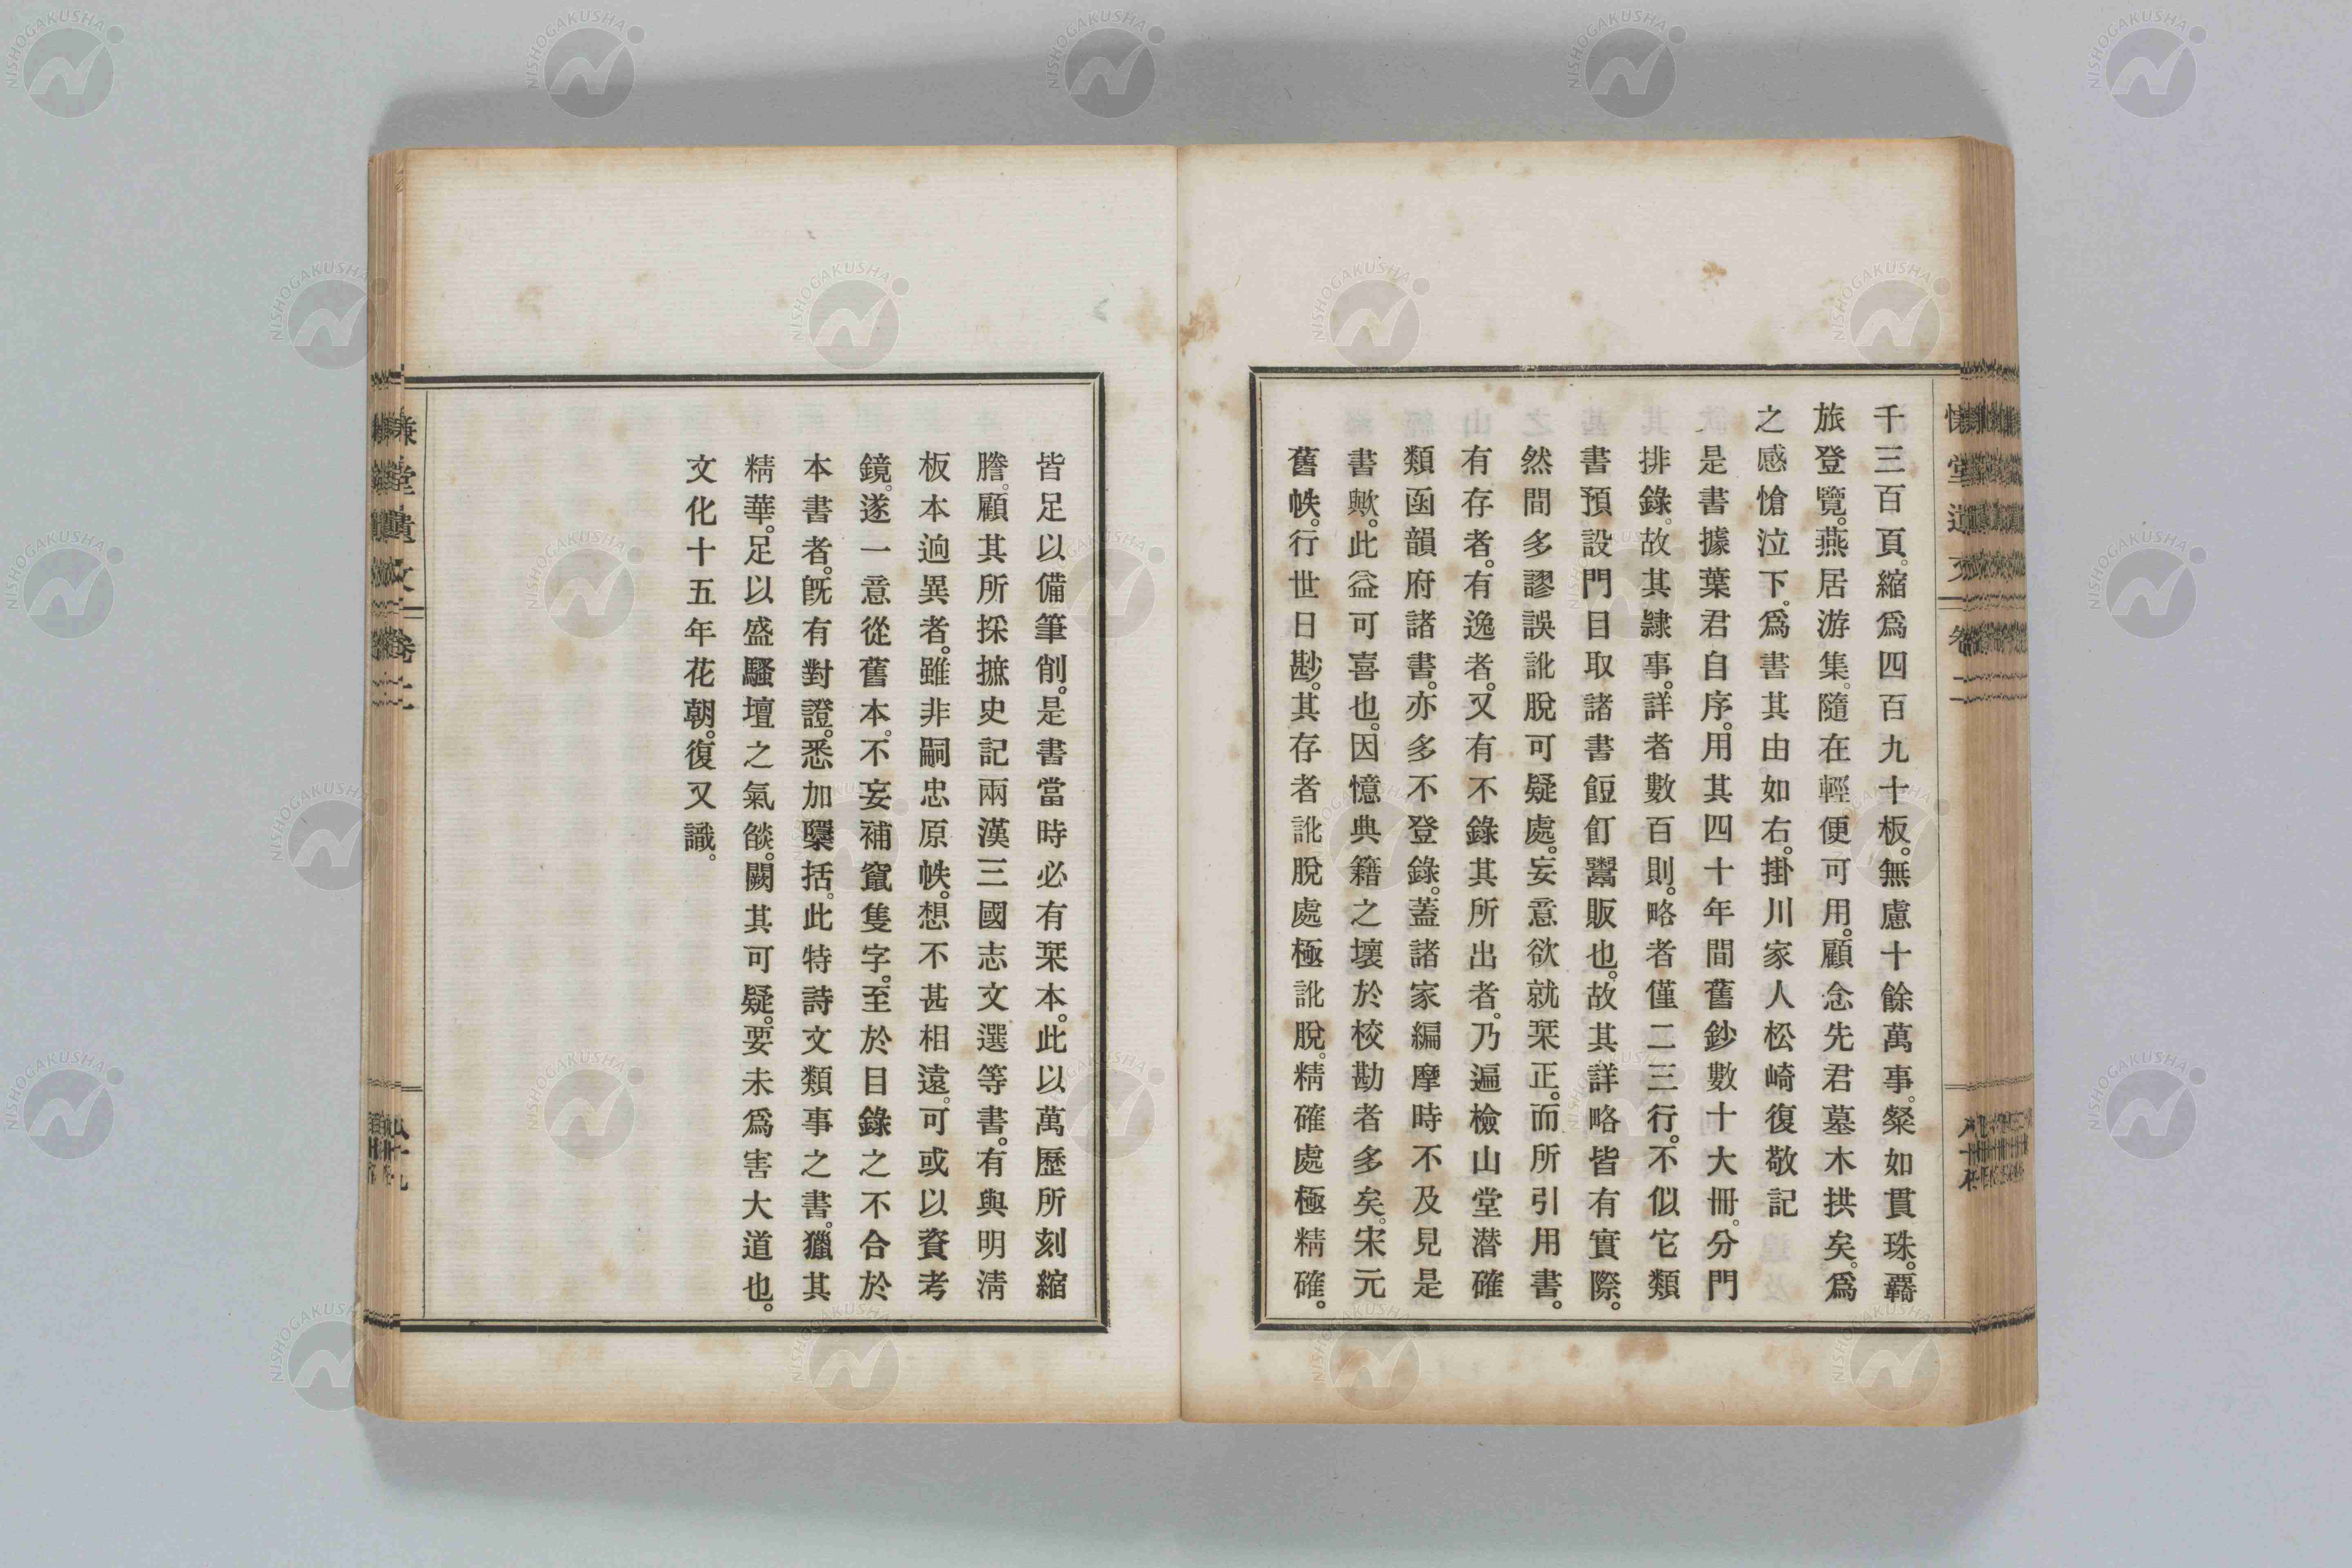 千三百頁。縮爲四百九十板。無慮十餘萬事。粲如貫珠。覉
旅登覽。燕居游集。隨在輕便可用。顧念先君墓木拱矣。爲
之感愴泣下。爲書其由如右。掛川家人松崎復敬記
是書據葉君自序。用其四十年間舊鈔數十大冊。分門
排錄。故其隷事。詳者數百則。略者僅二三行。不似它類
書預設門目取諸書餖飣鬻販也。故其詳略皆有實際。
然間多謬誤訛脫可疑處。妄意欲就栞正。而所引用書。
有存者。有逸者。又有不錄其所出者。乃遍檢山堂潜確
類函韻府諸書。亦多不登錄。蓋諸家編摩時不及見是
書歟。此益可喜也。因憶典籍之壞於校勘者多矣。宋元
舊帙。行世日尠。其存者訛脫處極訛脫。精確處極精確。
皆足以備筆削。是書當時必有栞本。此以萬歷所刻縮
謄。顧其所採摭史記兩漢三國志文選等書。有與明淸
板本逈異者。雖非嗣忠原帙。想不甚相遠。可或以資考
鏡。遂一意從舊本。不妄補竄隻字。至於目錄之不合於
本書者。旣有對證。悉加檃括。此特詩文類事之書。獵其
精華。足以盛騷壇之氣燄。闕其可疑。要未爲害大道也。
文化十五年花朝。復又識。
慊堂遺文 卷二
NISHOGAKUSHA